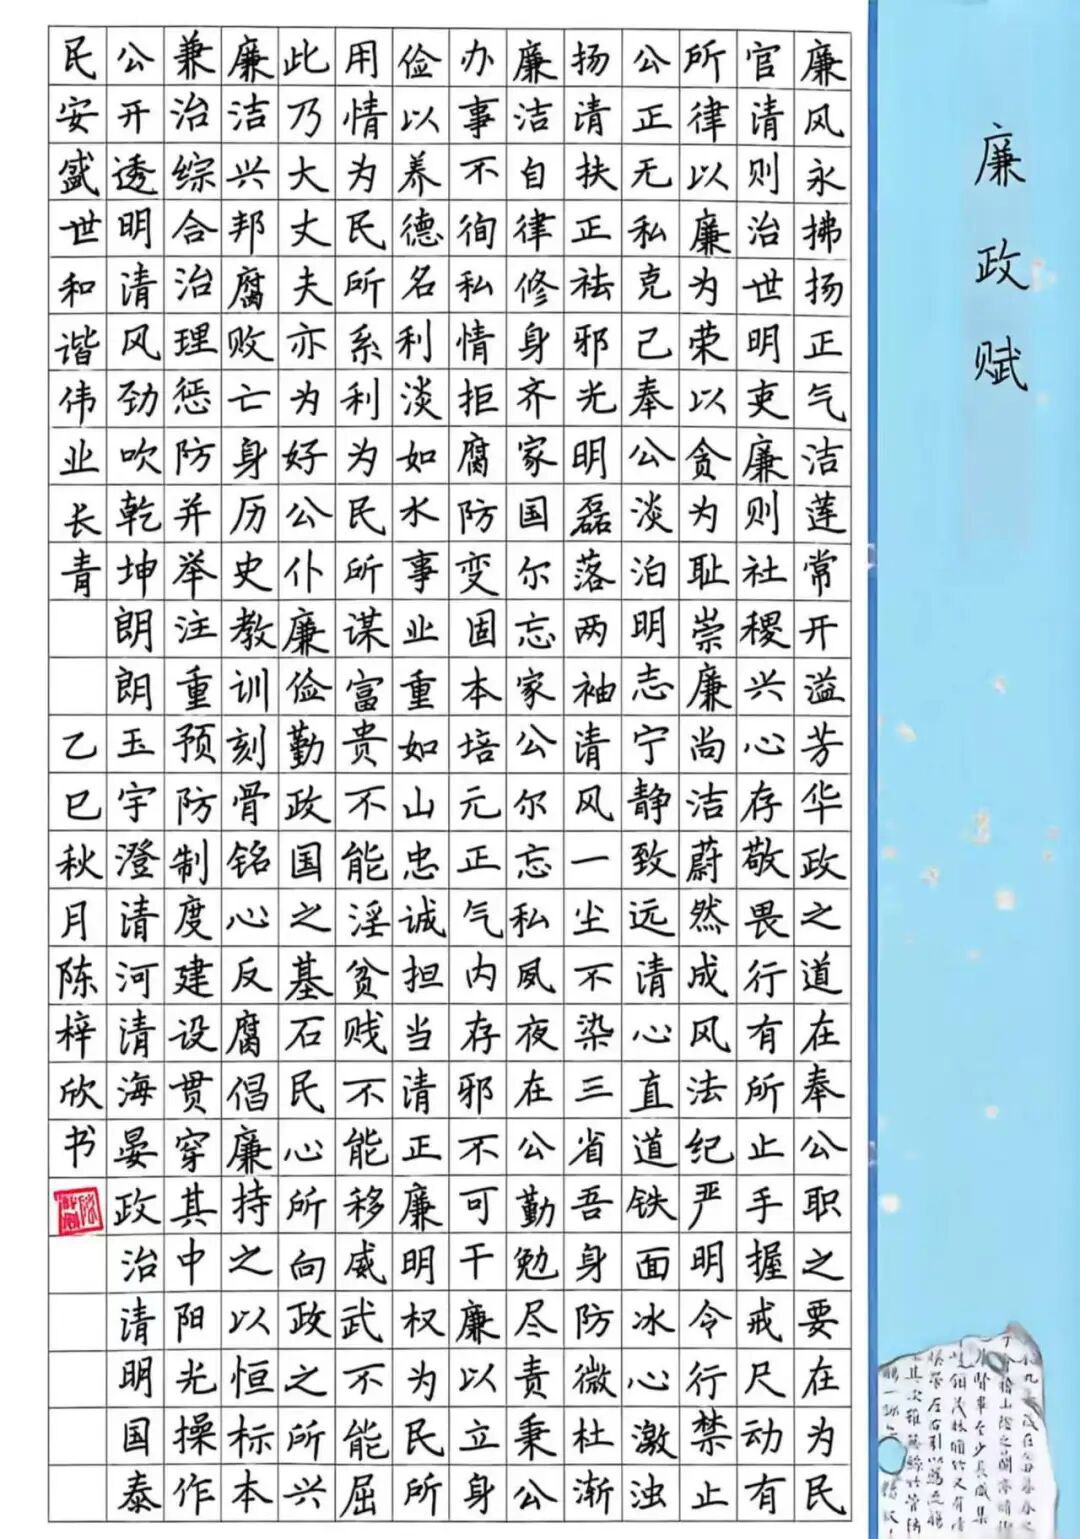 廉政赋
廉风永拂扬正气洁莲常开溢芳华政之道在奉公职之要在为民
官清则治世明吏廉则社稷兴心存敬畏行有所止手握戒尺动有
所律以廉为荣以贪为耻崇廉尚洁蔚然成风法纪严明令行禁止
公正无私克己奉公淡泊明志宁静致远清心直道铁面冰心激浊
扬清扶正祛邪光明磊落两袖清风一尘不染三省吾身防微杜渐
廉洁自律修身齐家国尔忘家公尔忘私夙夜在公勤勉尽责秉公
办事不徇私情拒腐防变固本培元正气内存邪不可干廉以立身
俭以养德名利淡如水事业重如山忠诚担当清正廉明权为民所
用情为民所系利为民所谋富贵不能淫贫贱不能移威武不能屈
此乃大丈夫亦为好公仆廉俭勤政国之基石民心所向政之所兴
廉洁兴邦腐败亡身历史教训刻骨铭心反腐倡廉持之以恒标本
兼治综合治理惩防并举注重预防制度建设贯穿其中阳光操作
公开透明清风劲吹乾坤朗朗玉宇澄清河清海晏政治清明国泰
民安盛世和谐伟业长青 乙巳秋月陈梓欣书